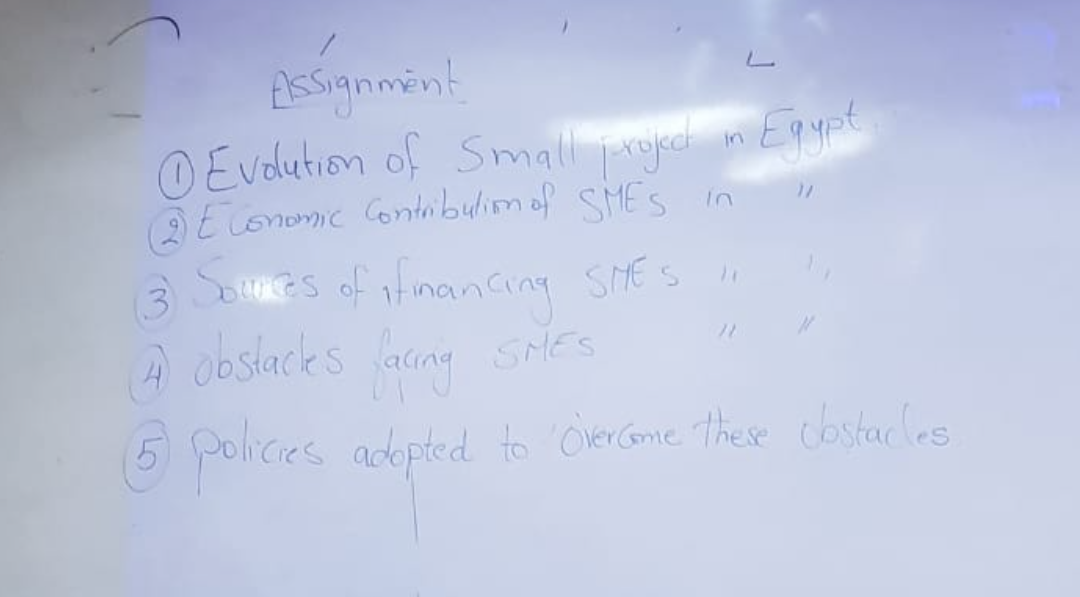 Assignment
① Evolution of Small project in Egypt.
② Economic Contribution of SMEs in "
③ Sources of financing SMEs " "
④ obstacles facing SMEs " "
⑤ policies adopted to overcome these obstacles